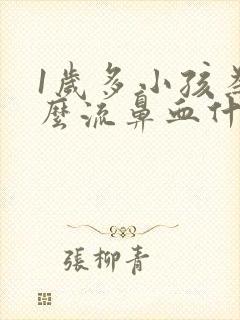 1歲多小孩為
麼流鼻血什
張柳青